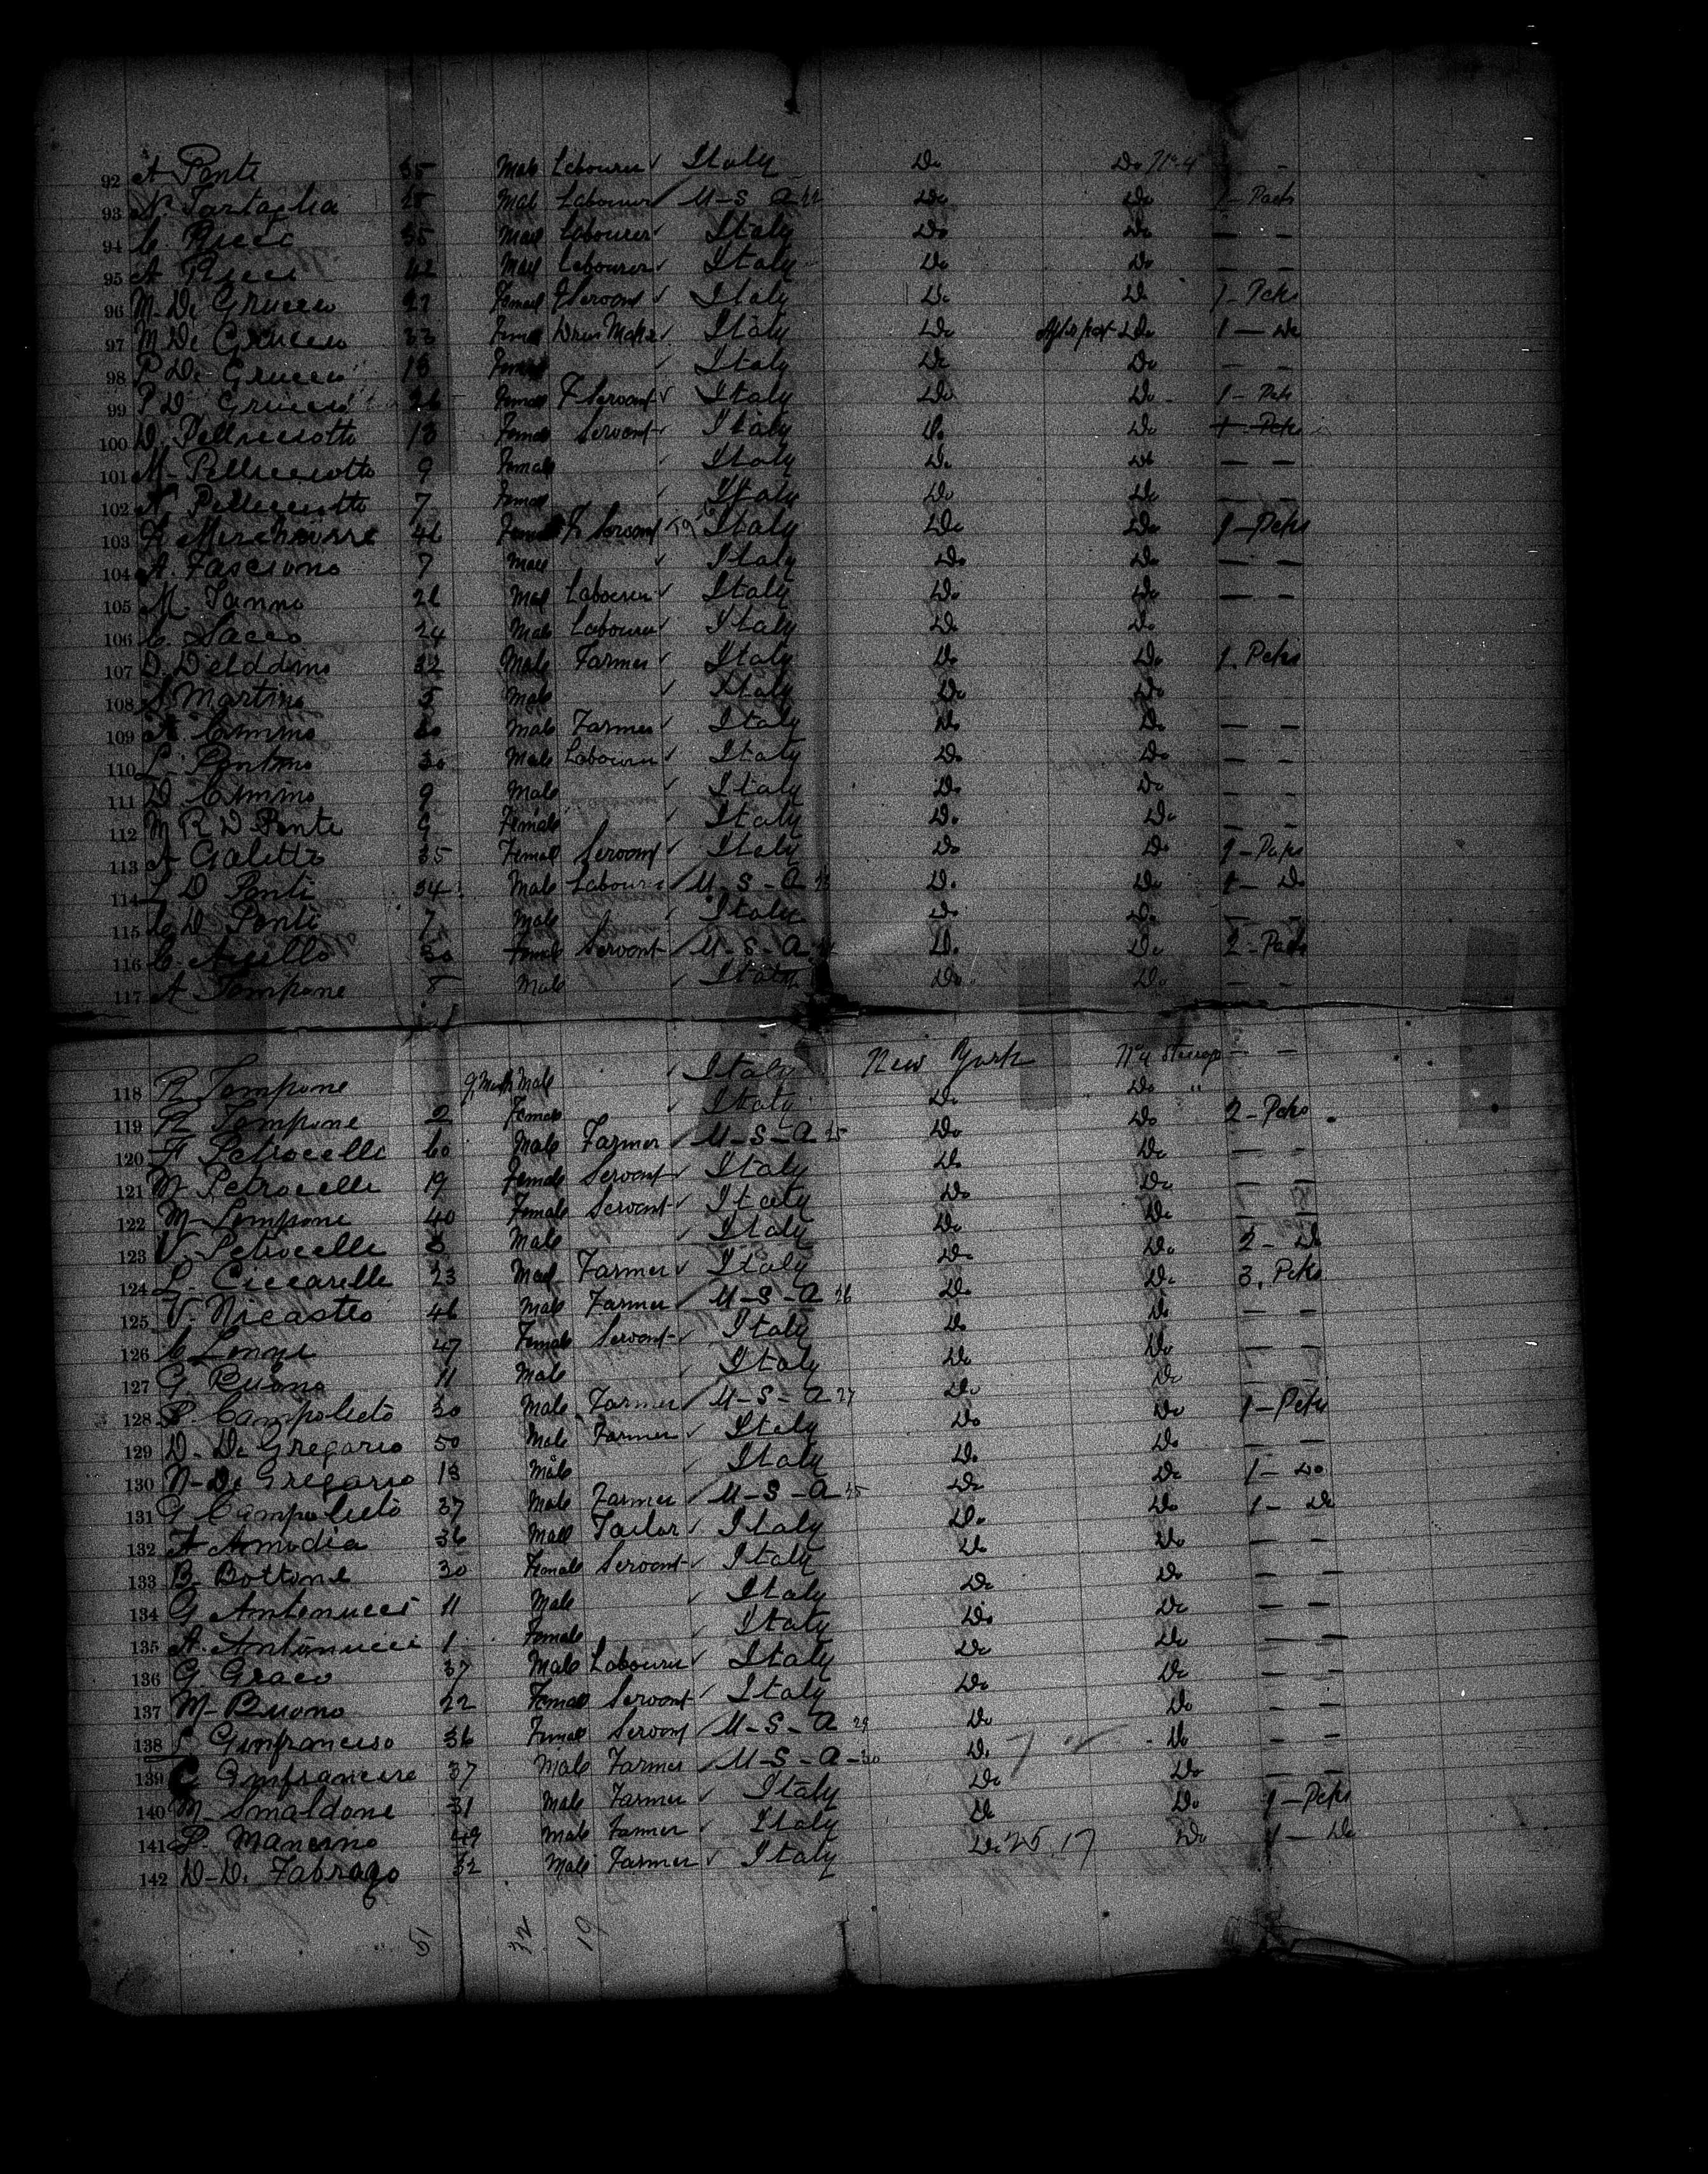 92 A Ponte 35 Male Labourer ✓ Italy Do Do No 4 -
93 N. Tartaglia Mal Labourer ✓ U-S A 22 Do Do 1- Pack
94 C. Ricci 35 Mael Labourer ✓ Italy Do Do - -
95 A Ricci 42 Mael Labourer ✓ Italy Do Do - -
96 M. Di Grucco 27 Femael F Servant ✓ Italy Do Do 1- Pcks
97 M Di Grucco 33 Femal Dress Maker ✓ Italy Do Do 1 - Do
98 P Di Grucco 18 ✓ Italy Do Do - -
99 P D Grucco 26 Femael F Servant ✓ Italy Do Do - 1- Pck
100 D. Pellicciotto 13 Femal Servant ✓ Italy Do Do 1 Pcks
101 M- Pellicciotto 9 Female ✓ Italy Do Do - -
102 N. Pellicciotto 7 Femael ✓ Italy Do Do - -
103 46 F Servant Italy Do Do 1-Pcks
104 A. Fasciono 7 Mael ✓ Italy Do Do - -
105 M. Ianno 26 Mal Labourer ✓ Italy Do Do - -
106 C. Sacco 24 Male Labourer ✓ Italy Do Do
107 D. Delddino 32 Male Farmer ✓ Italy Do Do 1. Pcks
108 S Martino 5 Male ✓ Italy Do Do
109 A. Cimino Male Farmer ✓ Italy Do Do - -
110 L. Pontino 30 Male Labourer ✓ Italy Do Do - -
111 D. Cimino 9 Male ✓ Italy Do Do - -
112 M R D Ponte 9 Female ✓ Italy Do Do - -
113 A Galetti 35 Femall Servant ✓ Italy Do Do 1-Pcks
114 L D Ponti 34 Male Labourer ✓ U-S-A 23 Do Do 1- Do
115 C D Ponti 7 Male ✓ Italy Do Do - -
116 C. Aiello 30 Female Servant ✓ U-S-A Do Do 2-Packs
117 A Tompone 8 Male ✓ Italy Do Do - -
118 R Tompone 9 Month Male ✓ Italy New York No 4 Steerage - -
119 R Tompone 2 Female ✓ Italy Do Do "
120 F Petrocelli 60 Male Farmer ✓ U-S-A 25 Do Do 2-Pcks
121 M Petrocelli 19 Female Servant ✓ Italy Do Do - -
122 M- Tompone 40 Female Servant ✓ Italy Do Do - -
123 V. Petrocelli 8 Male ✓ Italy Do Do - -
124 L. Ciccarelli 23 Mael Farmer ✓ Italy Do Do 2- Do
125 V. Nicastro 46 Male Farmer ✓ U-S-A 26 Do Do 3. Pcks
126 C Longe 47 Female Servant ✓ Italy Do Do - -
127 G. Buono 11 Male ✓ Italy Do Do - -
128 P. Campolieto 30 Male Farmer ✓ U-S-A 27 Do Do 1-Pcks
129 D- Di Gregorio 50 Male Farmer ✓ Italy Do Do - -
130 N- Di Gregorio 18 Male ✓ Italy Do Do 1- Do
131 G Campolieto 37 Male Farmer ✓ U-S-A Do Do 1- Do
132 A Amidia 36 Mall Tailor ✓ Italy Do Do - -
133 B- Bottone 30 Female Servant ✓ Italy Do Do - -
134 G Antonucci 11 Male ✓ Italy Do Do - -
135 A. Antonucci 1 Female ✓ Italy Do Do - -
136 G. Graco 37 Male Labourer ✓ Italy Do Do - -
137 M- Buono 22 Femael Servant ✓ Italy Do Do - -
138 Ginfranciso 36 Femael Servant ✓ U-S-A 29 Do Do - -
139 C. Ginfrancisco 37 Male Farmer ✓ U-S-A-30 Do Do - -
140 M- Smaldone 31 Male Farmer ✓ Italy Do Do 1-Pcks
141 P. Mancino 49 Male Farmer ✓ Italy Do Do 1- Do
142 D-D. Fabrago 32 Male Farmer ✓ Italy Do 25.17
5 32 19